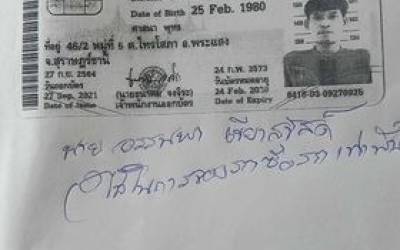 Date of Birth 25 Feb. 1980
ศาสนา พุทธ
ที่อยู่ 46/2 หมู่ที่ 5 ต.ไทรโสภา อ.พระแสง
จ.สุราษฎร์ธานี
27 ก.ย. 2564
วันออกบัตร
27 Sep. 2021
Date of Issue
เจ้าพนักงานออกบัตร
24 ก.พ. 2573
วันบัตรหมดอายุ
24 Feb. 2030
Date of Expiry
นาย
ใช้ในการจองรถซื้อรถเท่านั้น